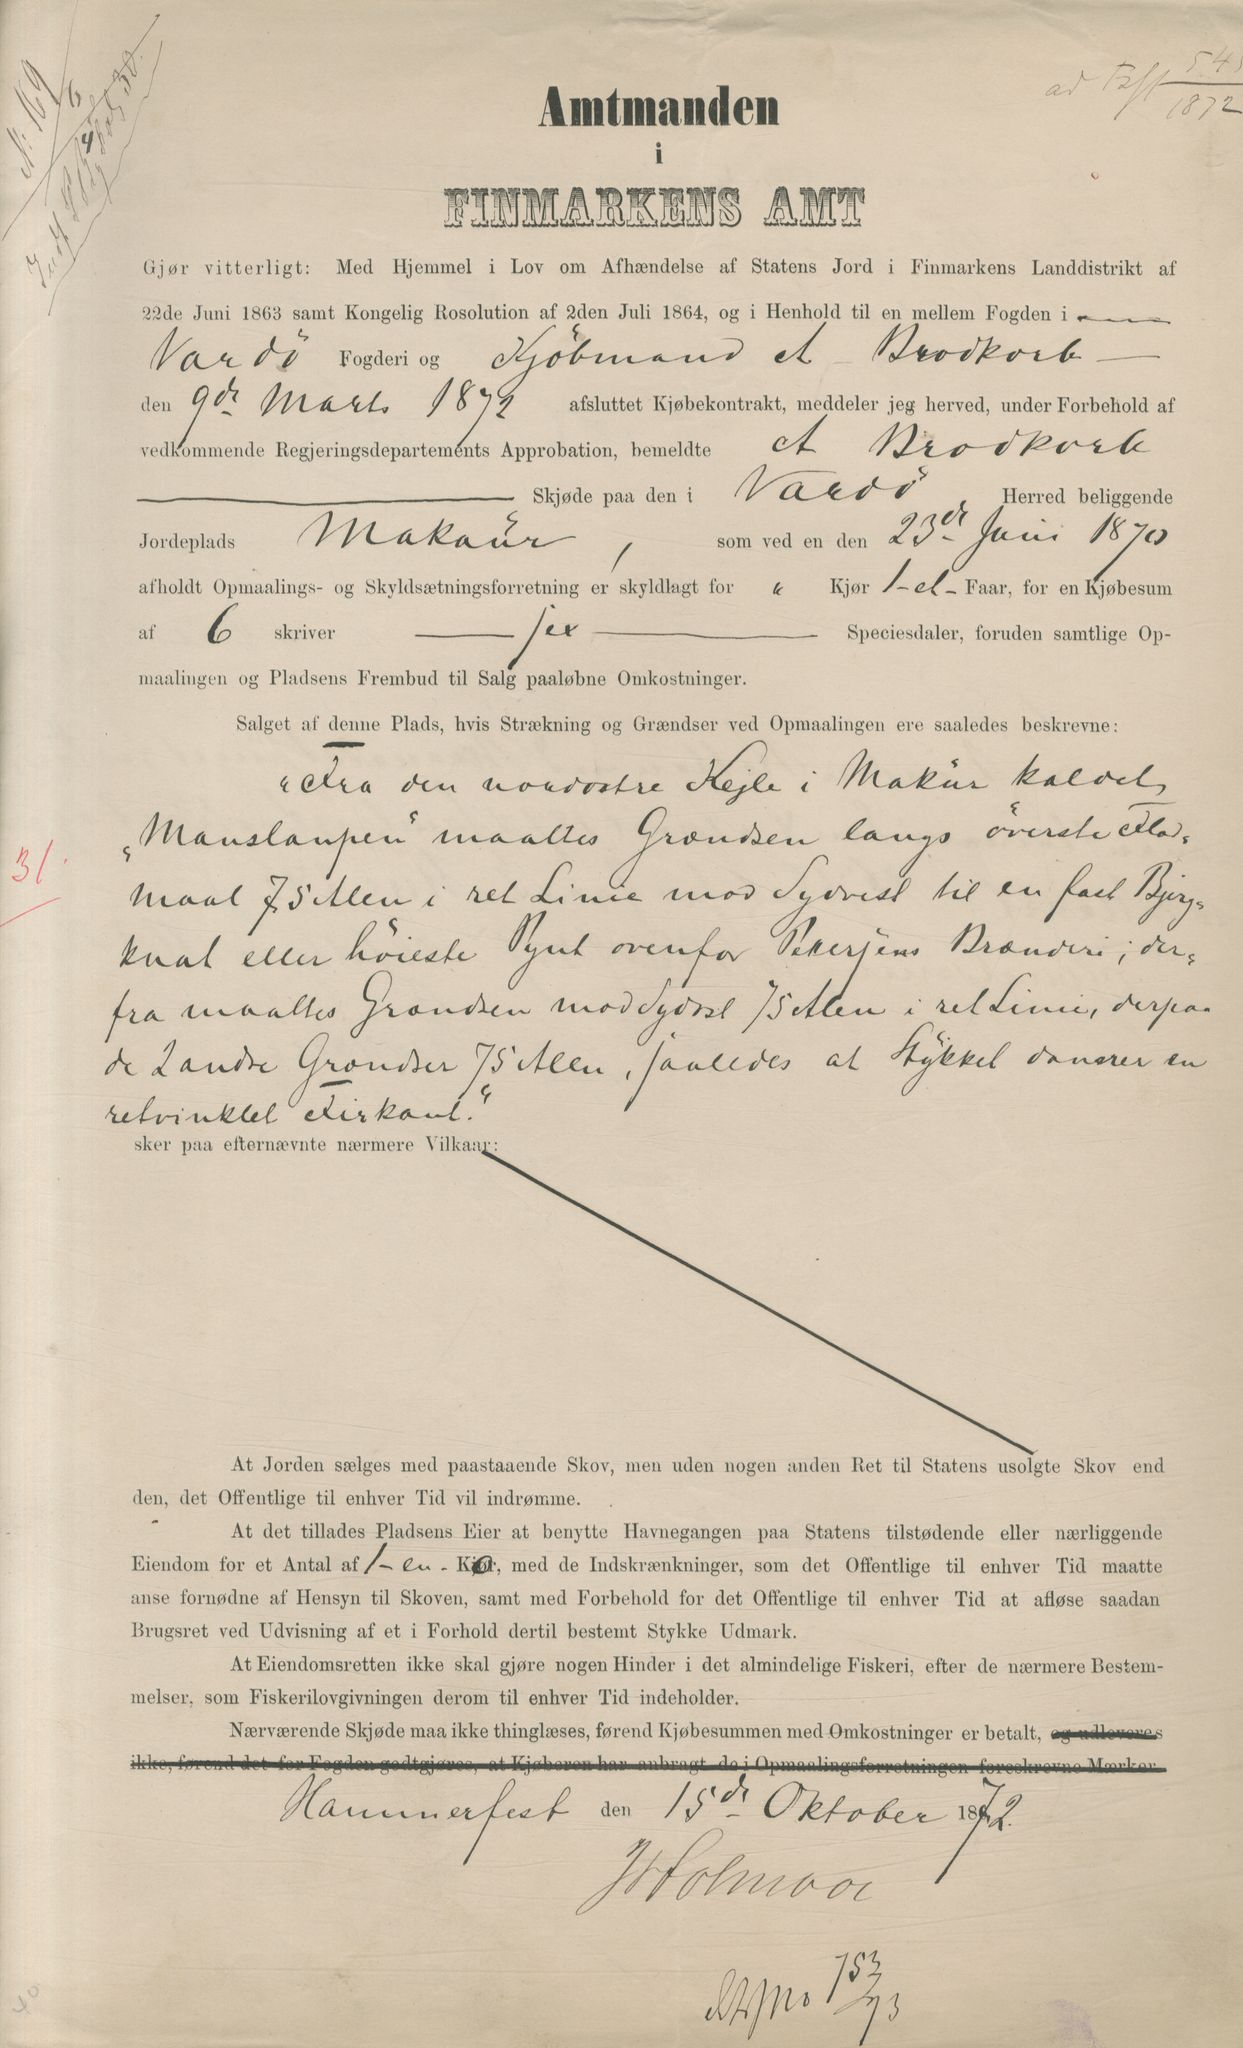 N. 169/6
ad 545/1872
Amtmanden
i
FINMARKENS AMT
Gjør vitterligt: Med Hjemmel i Lov om Afhændelse af Statens Jord i Finmarkens Landdistrikt af
22de Juni 1863 samt Kongelig Rosolution af 2den Juli 1864, og i Henhold til en mellem Fogden i
Vardö Fogderi og Kjöbmand A Brodkorb
den 9de Marts 1872 afsluttet Kjøbekontrakt, meddeler jeg herved, under Forbehold af
vedkommende Regjeringsdepartements Approbation, bemeldte A Brodkorb
Skjøde paa den i Vardö Herred beliggende
Jordeplads Makaür, som ved en den 23de Juni 1870
afholdt Opmaalings- og Skyldsætningsforretning er skyldlagt for " Kjør 1-et- Faar, for en Kjøbesum
af 6 skriver sex Speciesdaler, foruden samtlige Op-
maalingen og Pladsens Frembud til Salg paaløbne Omkostninger.
Salget af denne Plads, hvis Strækning og Grændser ved Opmaalingen ere saaledes beskrevne:
"Fra den nordostre Kejle i Makür kaldet
"Manslaupen" maaltes Grændsen langs överste Flod-
maal 75 Alen i ret Linie mod Sydvest til en fast Bjerg-
knat eller höieste Pynt ovenfor Petersens Brænderi; der-
fra maaltes Grændsen mod Sydost 75 Alen i ret Linie, derpaa
de 2 andre Grændser 75 Alen, saaledes at Stykket danner en
retvinklet Firkant."
sker paa efternævnte nærmere Vilkaar:
31.
At Jorden sælges med paastaaende Skov, men uden nogen anden Ret til Statens usolgte Skov end
den, det Offentlige til enhver Tid vil indrømme.
At det tillades Pladsens Eier at benytte Havnegangen paa Statens tilstødende eller nærliggende
Eiendom for et Antal af 1-en- Ko, med de Indskrænkninger, som det Offentlige til enhver Tid maatte
anse fornødne af Hensyn til Skoven, samt med Forbehold for det Offentlige til enhver Tid at afløse saadan
Brugsret ved Udvisning af et i Forhold dertil bestemt Stykke Udmark.
At Eiendomsretten ikke skal gjøre nogen Hinder i det almindelige Fiskeri, efter de nærmere Bestem-
melser, som Fiskerilovgivningen derom til enhver Tid indeholder.
Nærværende Skjøde maa ikke thinglæses, førend Kjøbesummen med Omkostninger er betalt, og udleveres
ikke, førend det for Fogden godtgjøres, at Kjøberen har anbragt de i Opmaalingsforretningen foreskrevne Mærker.
Hammerfest den 15de Oktober 1872.
Holmboe
753/73